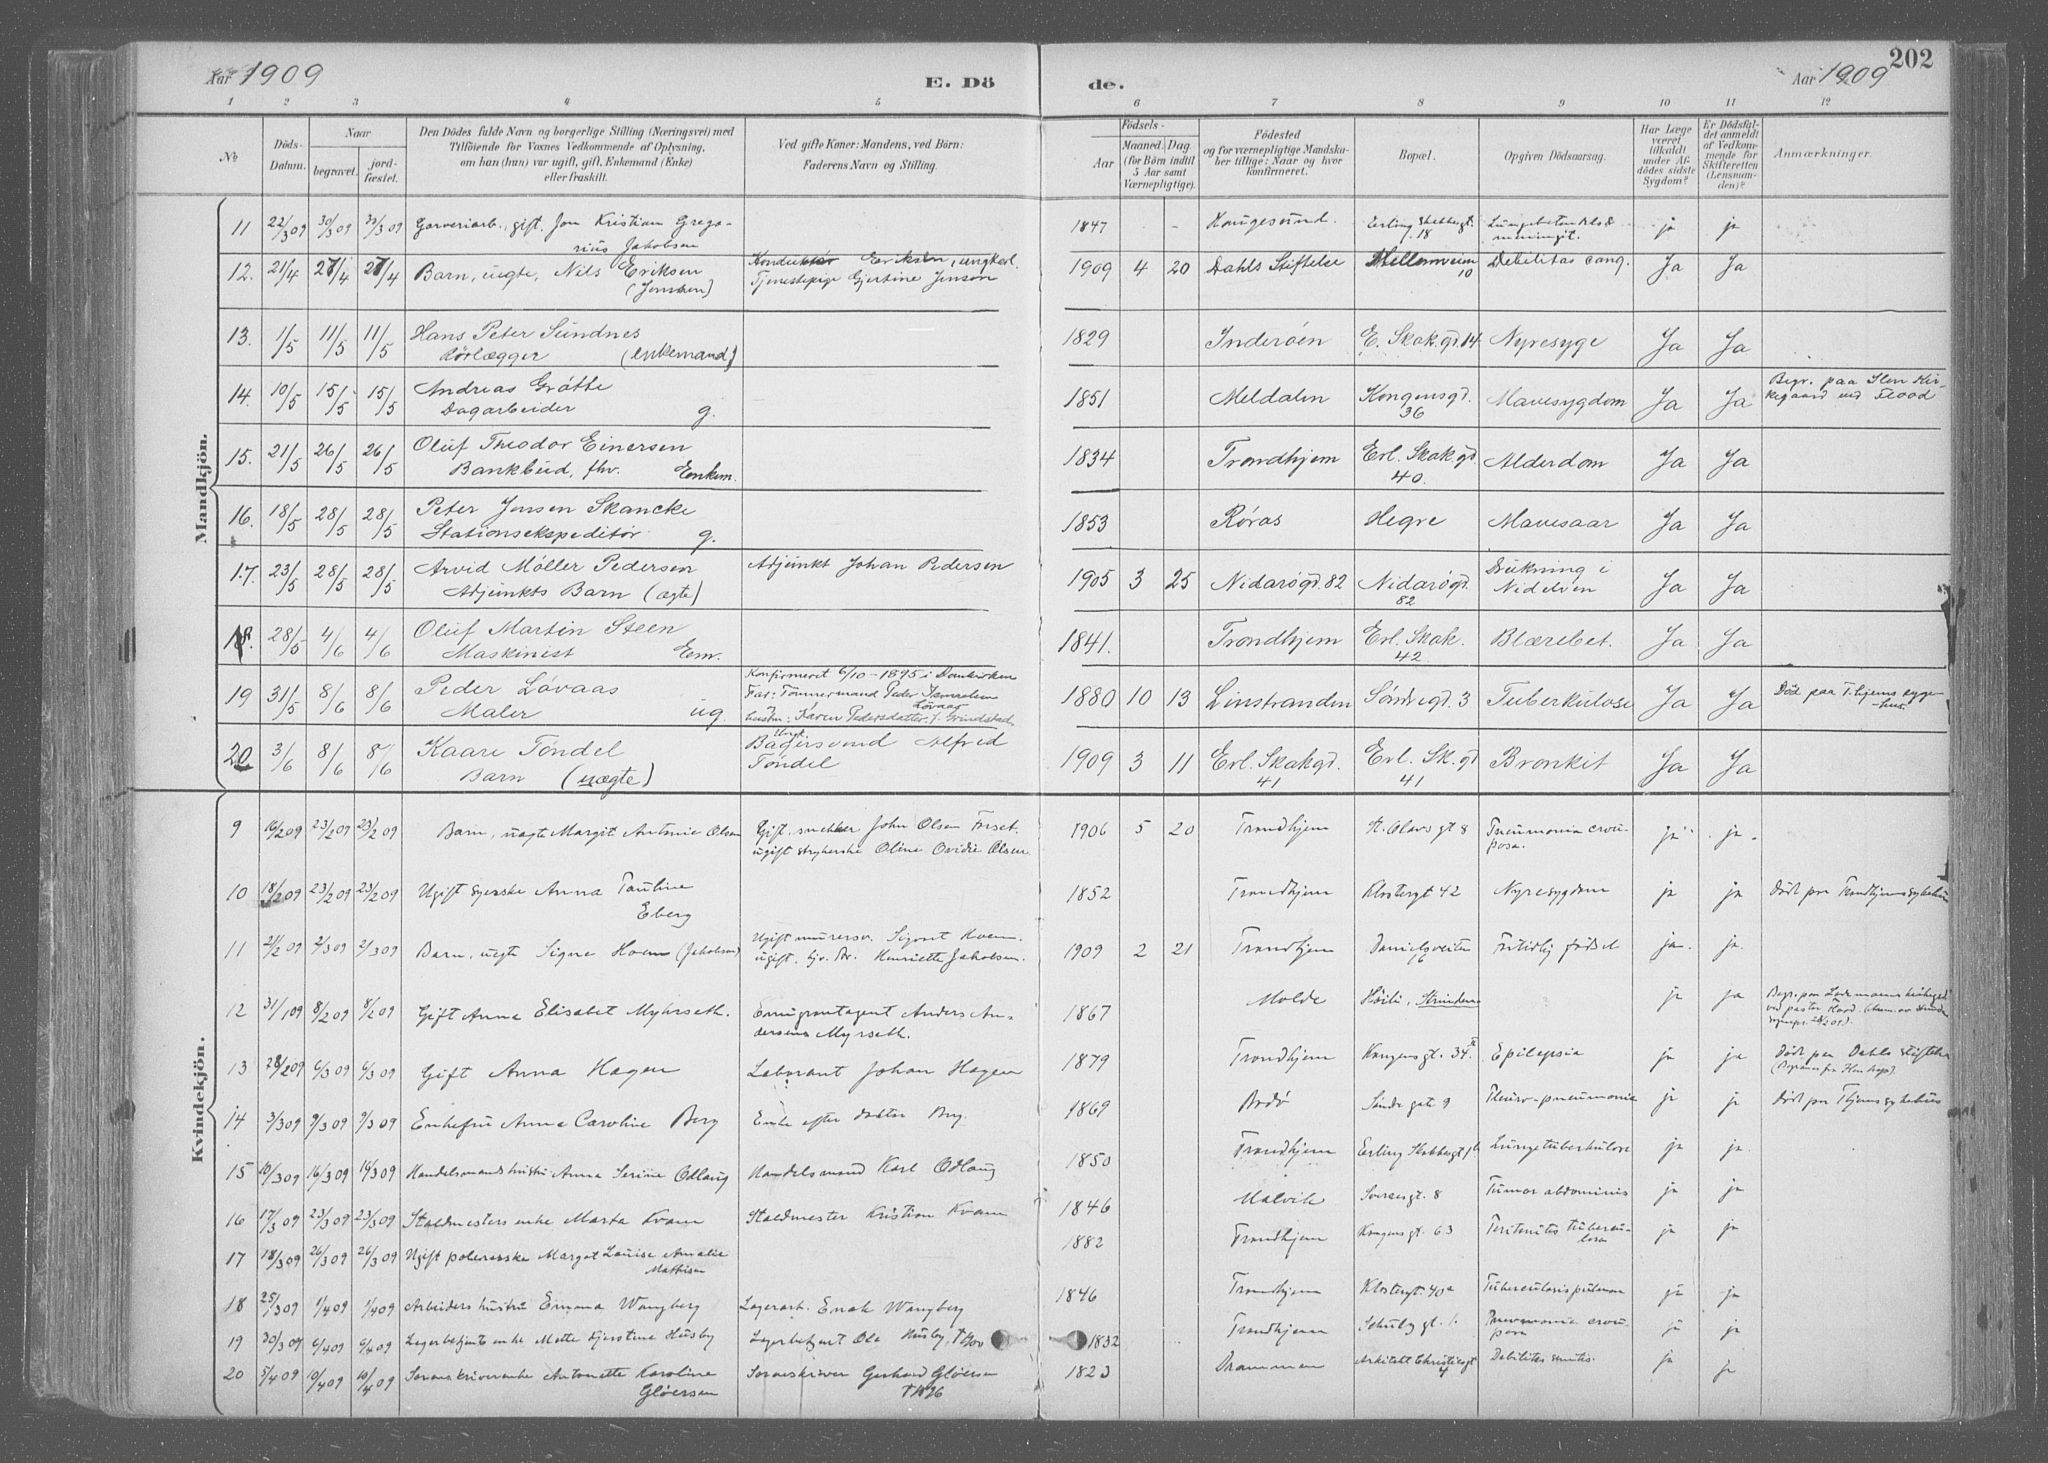 Aar 1909
E. Dö
de.
Aar 1909
202
1 2 3 4 5 6 7 8 9 10 11 12
No
Döds-Datum.
Naar
begravet.
jord-fæstet.
Den Dödes fulde Navn og borgerlige Stilling (Næringsvei) med
Tilföiende for Voxnes Vedkommende af Oplysning,
om han (hun) var ugift, gift, Enkemand (Enke)
eller fraskilt.
Ved gifte Koner: Mandens, ved Börn:
Faderens Navn og Stilling.
Födsels-
Aar
Maaned. Dag
(for Börn indtil
5 Aar samt
Værnepligtige).
Födested
og for værnepligtige Mandska-
ber tillige: Naar og hvor
konfirmeret.
Bopæl.
Opgiven Dödsaarsag.
Har Læge
været
tilkaldt
under Af-
dödes sidste
Sygdom?
Er Dödsfal-
det anmeldt
af Vedkom-
mende for
Skifteretten
(Lensman-
den)?
Anmærkninger.
Mandkjön.
11 22/3 09 30/3 09 30/3 09 Garveriarb., gift. Jon Kristian Grego-
rius Jakobsen
1847 - - Haugesund. Erling Skakkesgt. 18 ja ja
12. 21/4 27/4 27/4 Barn, uægte, Nils Eriksen
(Jensen)
Konduktør Eriksen, ungkarl.
Tjenestepige Gjertine Jensen
1909 4 20 Dahls Stiftelse 10 Debilitas cong. Ja Ja
13. 1/5 11/5 11/5 Hans Peter Sundnes
Rörlægger (enkemand)
1829 Inderöen E. Skak.gd. 14 Nyresyge Ja Ja
14. 10/5 15/5 15/5 Andreas Grøtte
Dagarbeider g.
1851 Meldalen Kongensgd. 36 Mavesygdom Ja Ja Begr. paa Ilen Kir-
kegaard ved Flood
15. 21/5 26/5 26/5 Oluf Theodor Einersen
Bankbud, fhv. Enkem.
1834 Trondhjem Erl. Skak.gd. 40. Alderdom Ja Ja
16. 18/5 28/5 28/5 Peter Jensen Skancke
Stationsekspeditør g.
1853 Røros Hegre Mavesaar Ja Ja
17. 23/5 28/5 28/5 Arvid Möller Pedersen
Adjunkts Barn (ægte)
Adjunkt Johan Pedersen
1905 3 25 Nidarögd. 82 Nidarögd. 82 Drukning i
Nidelven Ja Ja
18. 28/5 4/6 4/6 Oluf Martin Steen
Maskinist Em.
1841. Trondhjem Erl. Skak. 42 Blærebet. Ja Ja
19 31/5 8/6 8/6 Peder Lövaas
Maler ug.
Konfirmeret 6/10 - 1895 i Domkirken
Far: Tömmermand Peder Lövaas
hustru: Karen Pedersdatter f. Grindstad
1880 10 13 Linstranden Söndregd. 3 Tuberkulose Ja Ja Död paa T.hjems syge-
hus.
20 3/6 8/6 8/6 Kaare Töndel
Barn (uægte)
Ungk.
Bagersvend Alfred
Töndel
1909 3 11 Erl. Skakgd. 41 Erl. Sk.gd 41 Bronkit Ja Ja
Kvindekjön.
9 16/2 09 23/2 09 23/2 09 Barn, uægte Margit Antonie Olsen
Gift snekker John Olsen
ugift strykerske Oline Ovidie Olsen.
1906 5 20 Trondhjem St. Olavs gt 8 Pneumonia crou-
posa. ja ja
10 18/2 09 23/2 09 23/2 09 Ugift syerske Anna Pauline
Eberg
1852 Trondhjem Klostergt 42 Nyresygdom ja ja Död paa Trondhjems sykehus
11 21/2 09 2/3 09 2/3 09 Barn, uægte Signe Hoem (Jakobsen)
Ugift murersv. Sigurd Hoem.
ugift. Henriette Jakobsen.
1909 2 21 Trondhjem Danielsveiten 16 Fritidlig födsel ja. ja.
12 31/1 09 8/2 09 8/2 09 Gift Anna Elisabet Myhrseth.
Emigrantagent Anders An-
dersens Myrseth.
1867 Molde Höili, Strinden ja ja Begr. paa Lademoens kirkegd
ved pastor
13 28/2 09 6/3 09 6/3 09 Gift Anna Hagen
Laborant Johan Hagen
1879 Trondhjem Kongensgt. 34 Epilepsia ja ja Död paa Dahls stiftelse
14 3/3 09 9/3 09 9/3 09 Enkefru Anna Caroline Berg
Enke efter doktor Berg
1869 Bodö Söndre gate 9 Pleuro-pneumonia ja ja Död paa T.hjems sykehus
15 10/3 09 16/3 09 16/3 09 Handelsmandshustru Anna Serine Odlaug
Handelsmand Karl Odlaug
1850 Trondhjem Lungetuberkulose ja ja
16 17/3 09 23/3 09 23/3 09 Staldmesters enke Marta Kvam
Staldmester Kristian Kvam
1846 Malvik 8 Tumor abdominis ja ja
17 18/3 09 26/3 09 26/3 09 Ugift polererske Margot Louise Amalie
Mathisen
1882 Trondhjem Kongensgt. 63 Peritonitis tubercu-
losa ja ja
18 25/3 09 1/4 09 1/4 09 Arbeiders hustru Emma Wangberg
Lagerarb. Enok Wangberg
1846 Trondhjem Klostergt. 40a Tuberculosis pulmon ja ja
19 30/3 09 6/4 09 6/4 09 Lagerbetjents enke Mette Gjerstine Husby
Lagerbetjent Ole Husby,
1832 Trondhjem Schultz gt. Pneumonia crou-
posa ja ja
20 5/4 09 10/4 09 10/4 09 Sorenskriverenke Antonette Karoline
Glöersen
Sorenskriver Gerhard Glöersen
1823 Drammen Arkitekt Christiesgt Debilitas senilis. ja ja